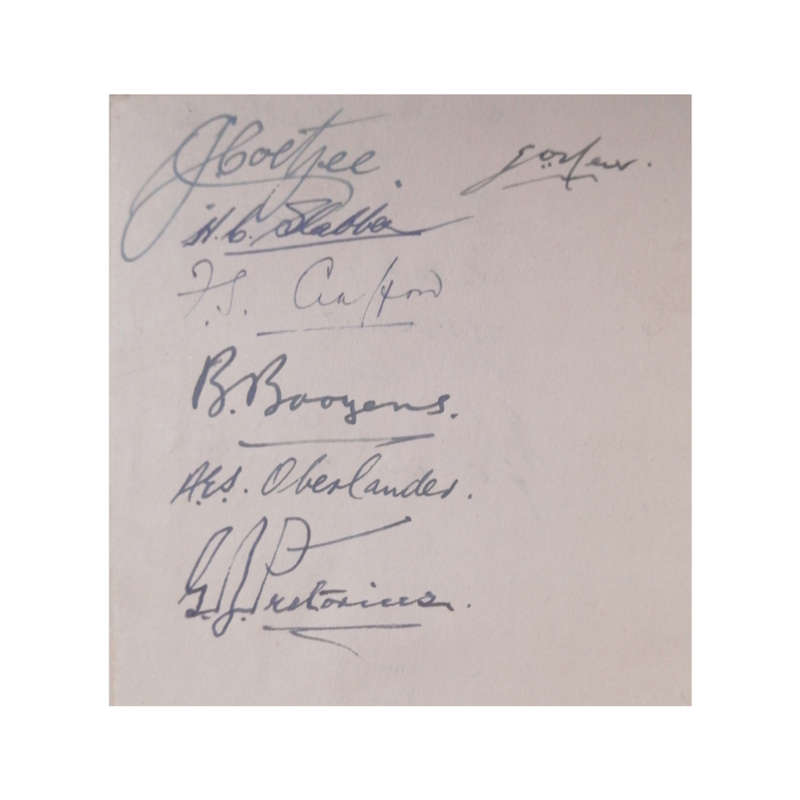 J Coetzee.
H. C. Slabber
F. S.
B. Booyens.
A.E.S. Oberlander.
G. J. Pretorius.